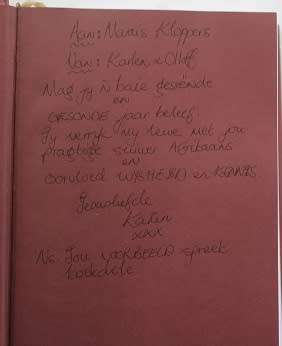 Aan: Marais Kloppers
Van: Karlien x Olloff
Mag jy 'n baie geseënde
en
GESONDE jaar beleef.
Jy verryk my lewe met jou
pragtige suiwer Afrikaans
en
oorvloed WYSHEID en KENNIS.
Geagteliefde
Karlien
xxx
Ns. Jou VOORBEELD spreek
boekdele